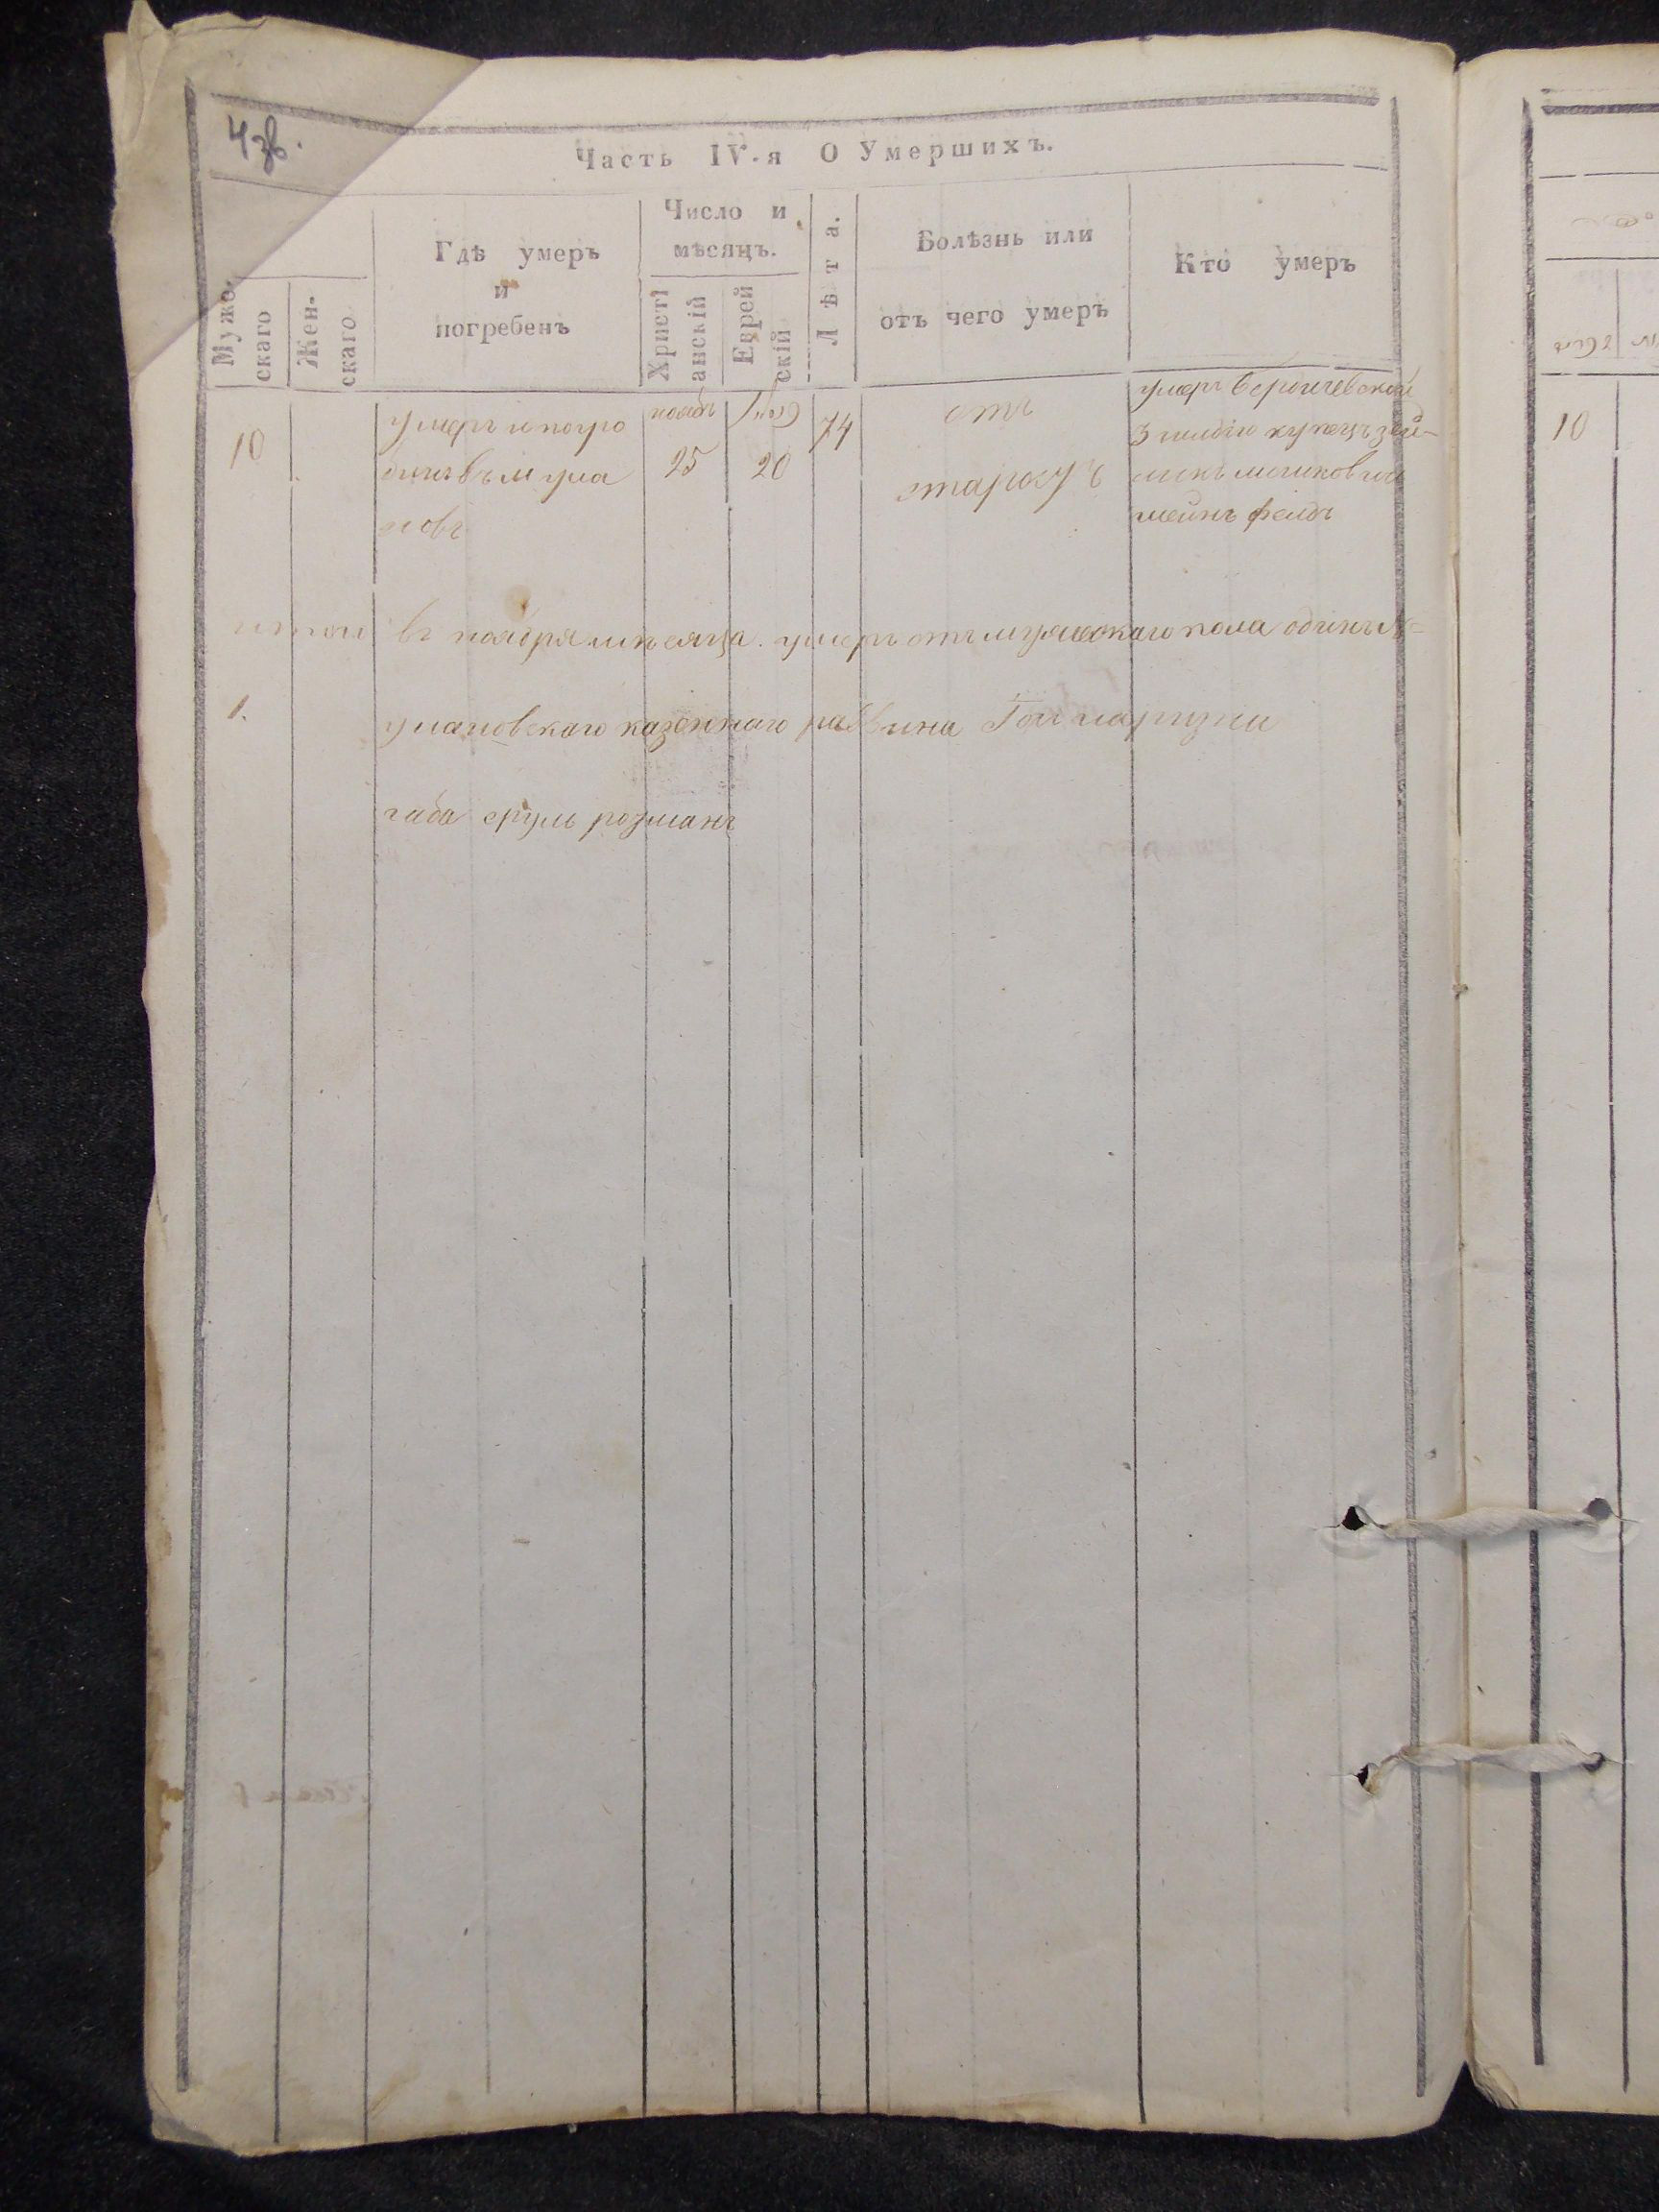 4зв.
Часть IV.я О Умершихъ.
Муже-
скаго
Жен-
скаго
Гдѣ умеръ
и
погребенъ
Число и
мѣсяцъ.
Христі
анскій
Еврей
скій
Лѣта.
Болѣзнь или
отъ чего умеръ
Кто умеръ
10
умеръ и погре
бенъ въ м ума
новъ
ноябр
25
20
74
отъ
старость
умеръ бердичевской
3 гилдіи купецъ зей-
мошковичъ
фелдъ
итого
въ ноября мѣсяца умеръ отъ мужескаго пола одинъ
1.
умановскаго казеннаго раввина
габе сруль розманъ
10